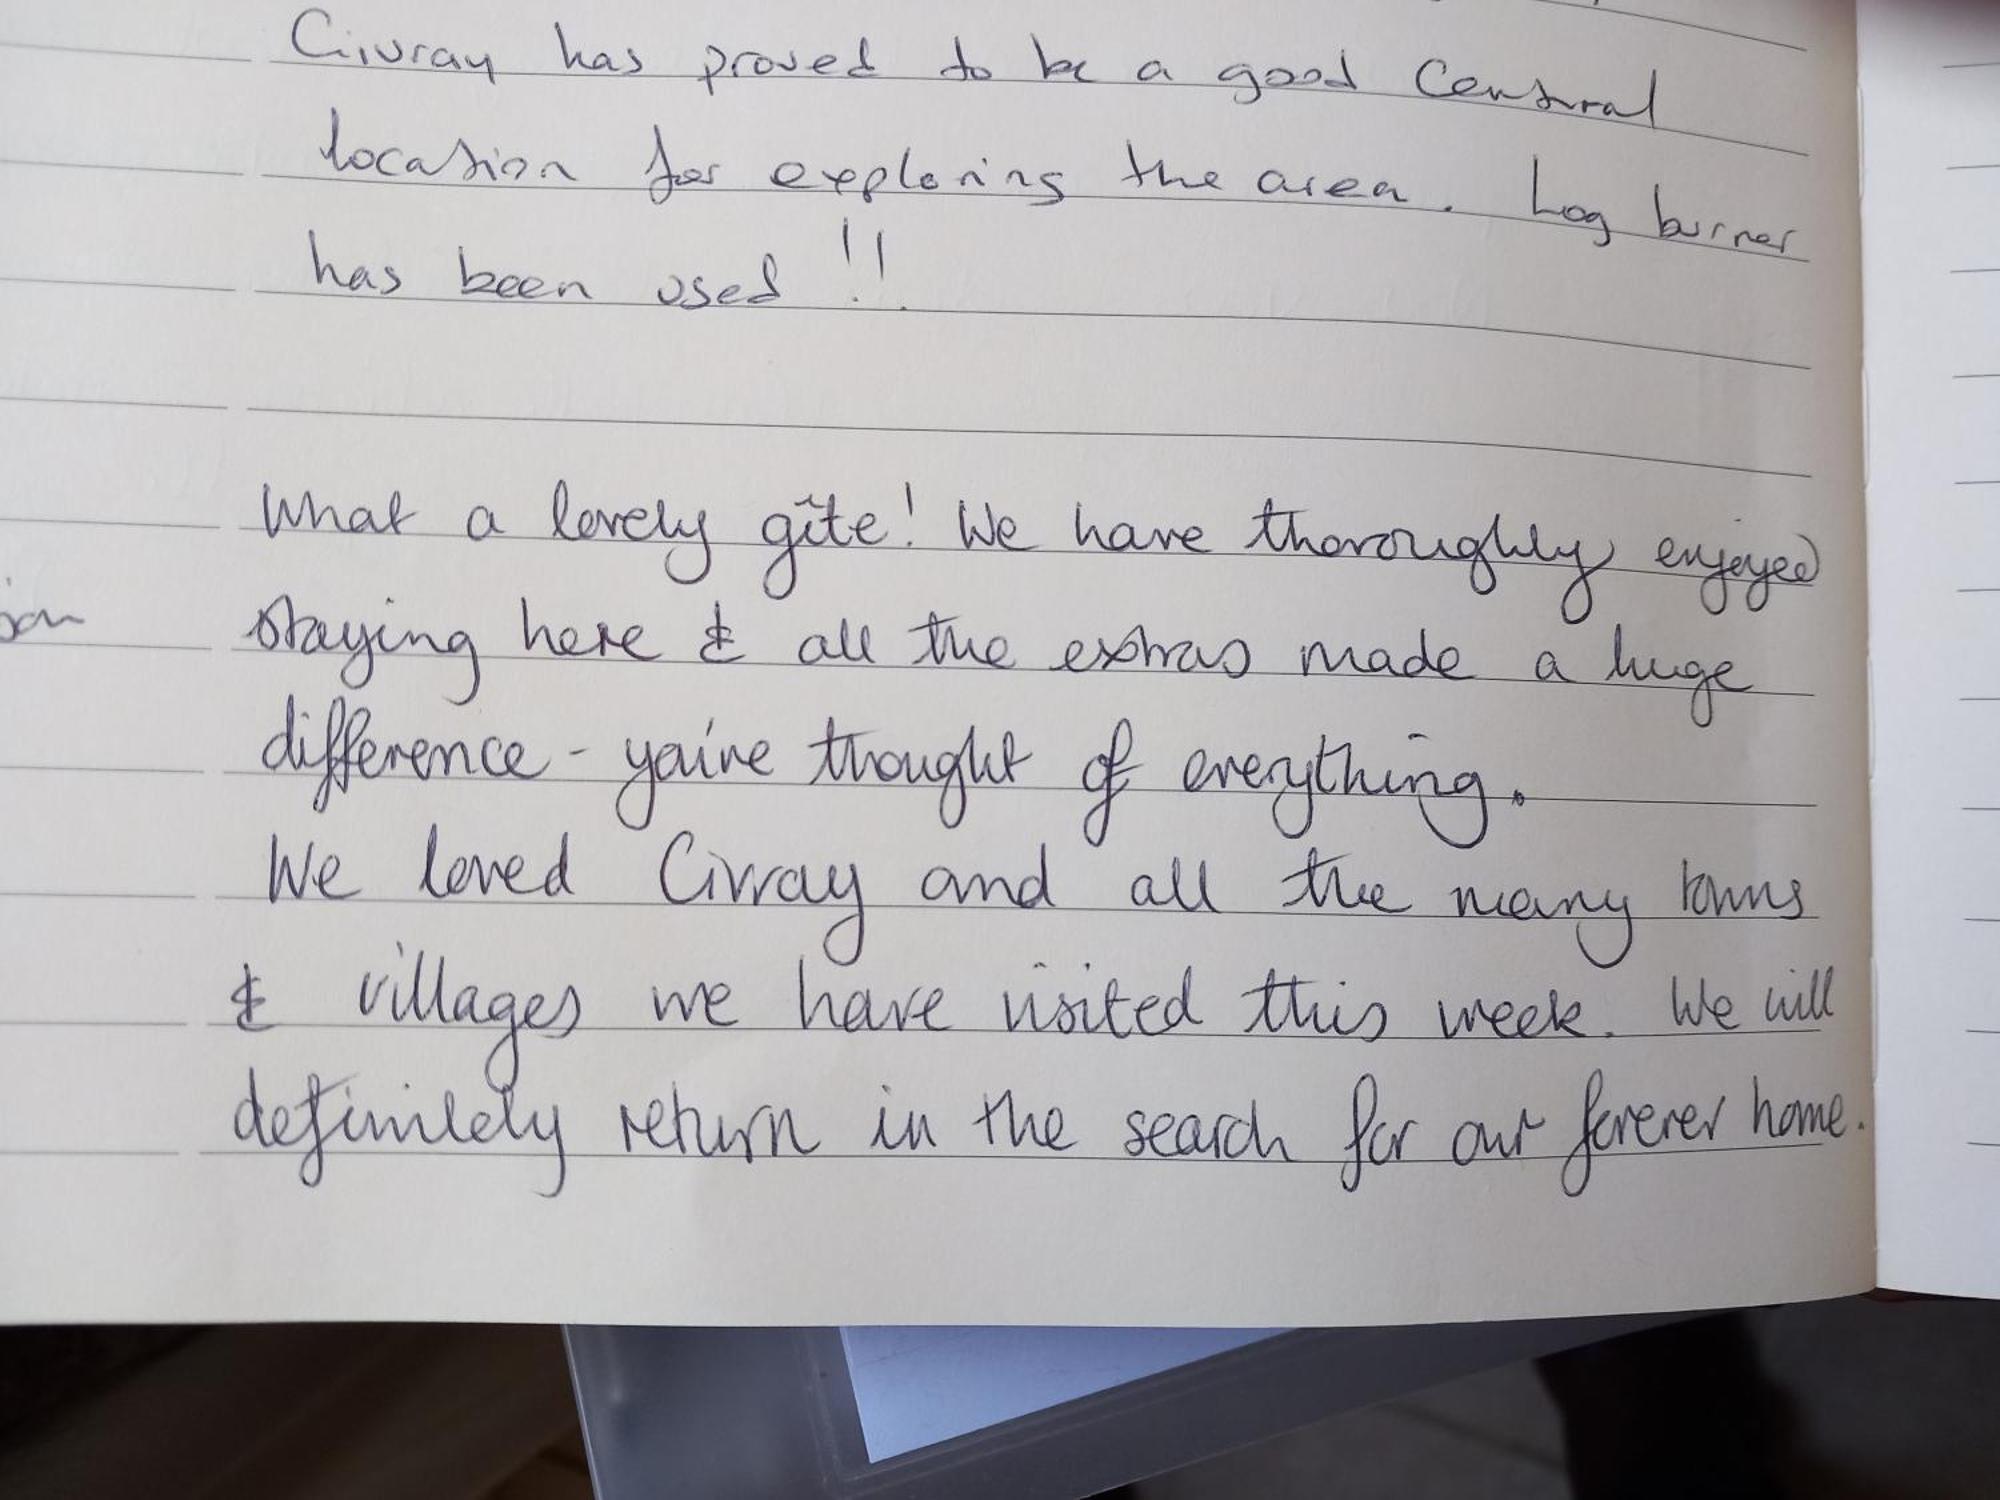 Civray has proved to be a good Central
location for exploring the area. Log burner
has been used !!
What a lovely gîte! We have thoroughly enjoyed
staying here & all the extras made a huge
difference - you've thought of everything.
We loved Civray and all the many towns
& villages we have visited this week. We will
definitely return in the search for our forever home.